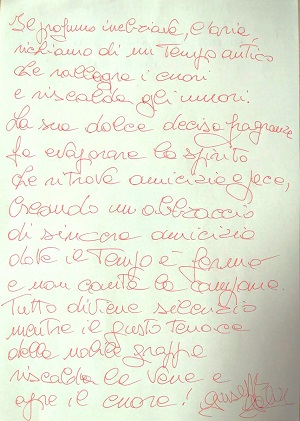 Il profumo inebriava, l'aria,
richiamo di un Tempo antico
che rallegra i cuori
e riscalda gli umori.
La sua dolce decisa fragranza
fa evaporare lo spirito
che ritrova amicizia e pace,
Creando un abbraccio
di sincera amicizia
dove il Tempo è fermo
e non conta le campane.
Tutto diviene silenzio
mentre il gusto Tenace
della nobile grappa
riscalda le vene e
apre il cuore!